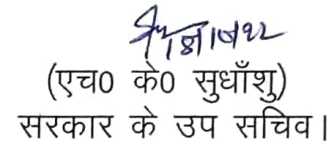 (एच0 के0 सुधाँशु)
सरकार के उप सचिव।